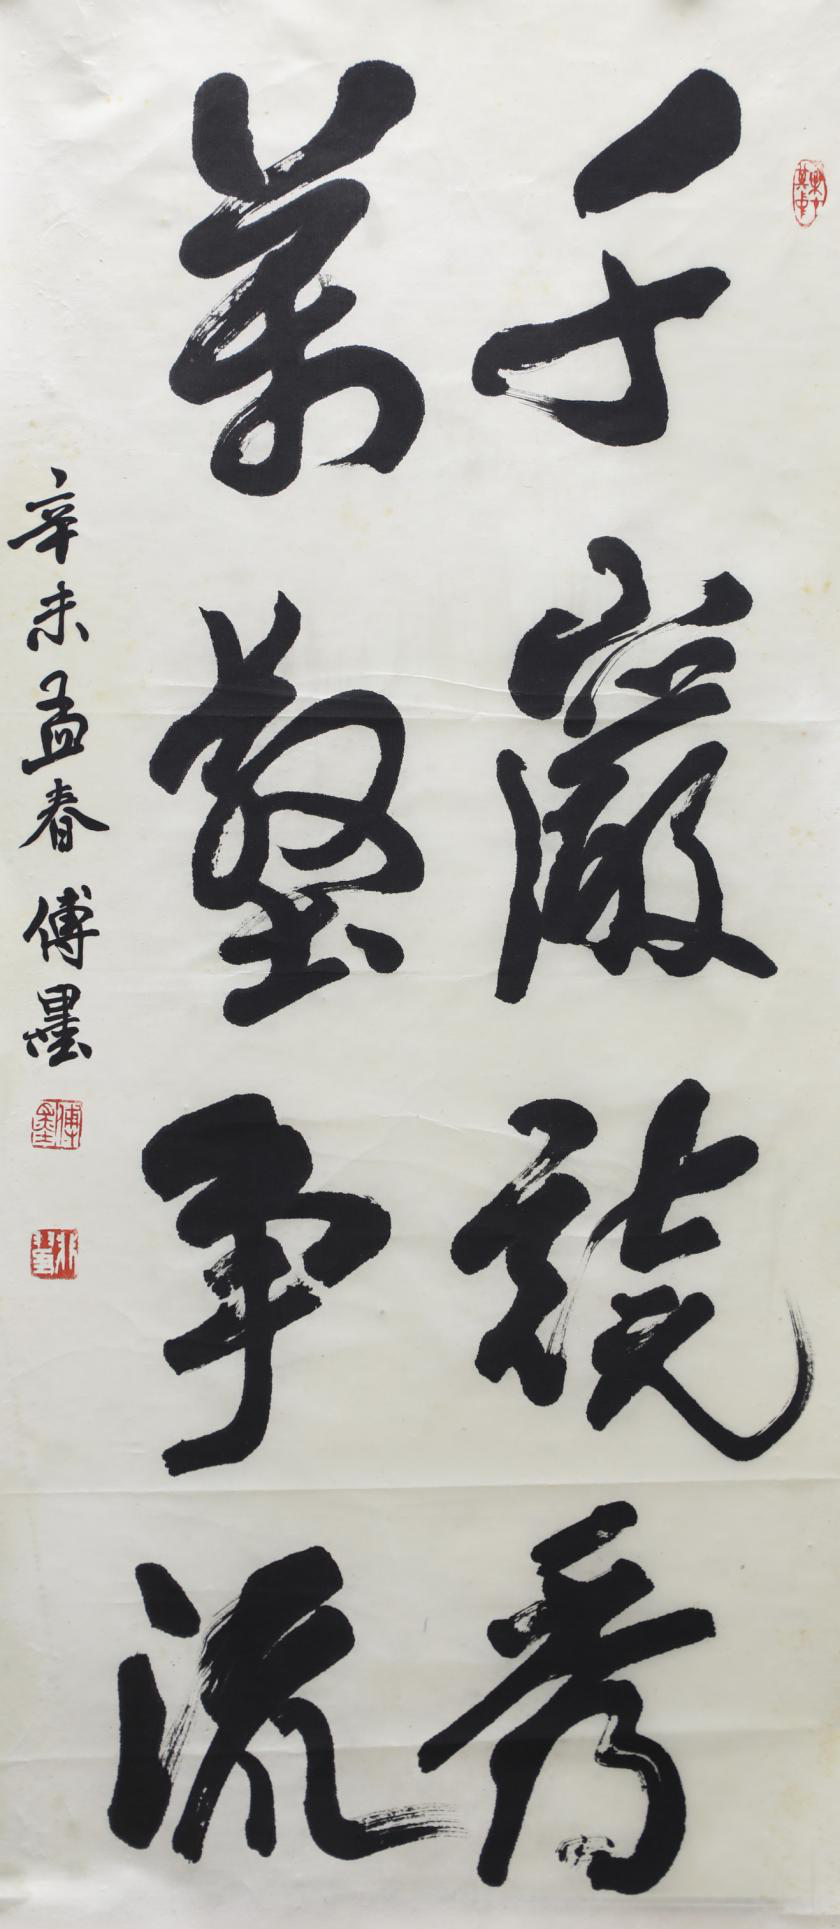 千巖競秀
萬壑争流
辛未孟春傅墨
傅墨